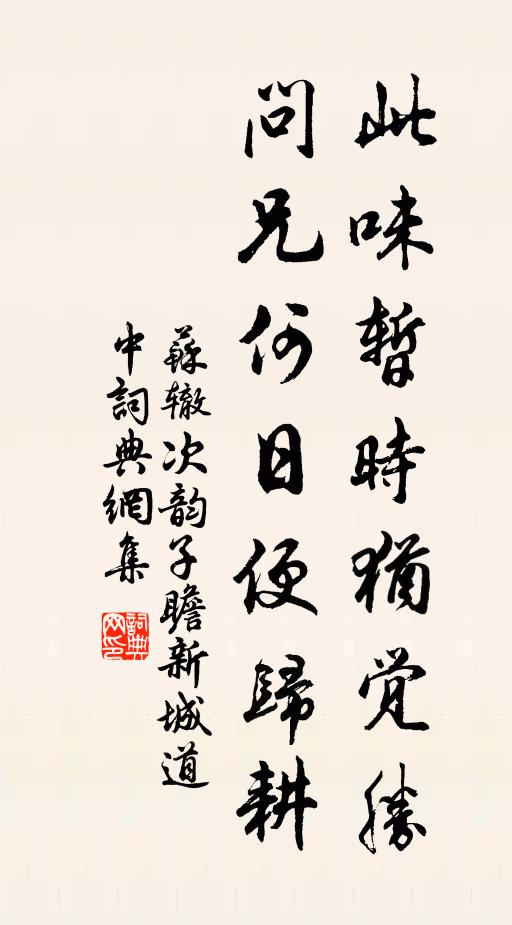 此味暂時猶觉勝
問兄何日便歸耕
蘇辙次韵子瞻新城道
中詞典網集
詞典
网印